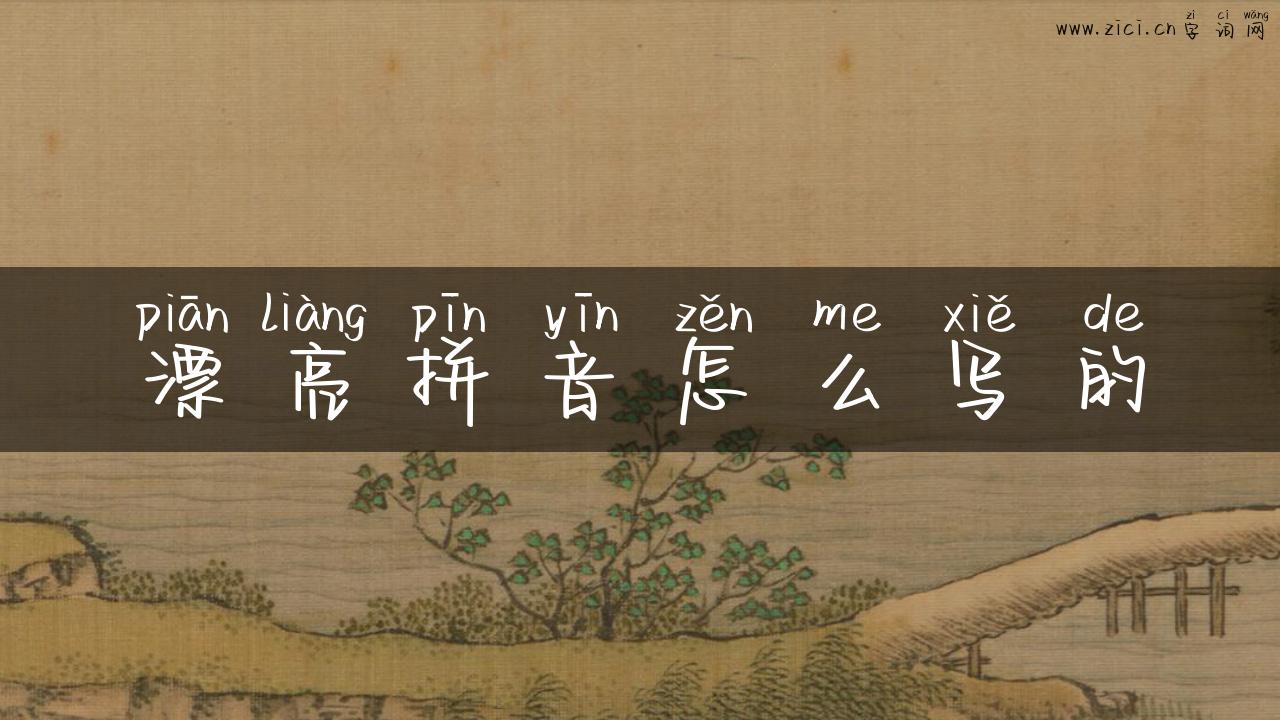 zì cí wǎng
www.zici.cn 字词网
piān liàng pīn yīn zěn me xiě de
漂亮拼音怎么写的